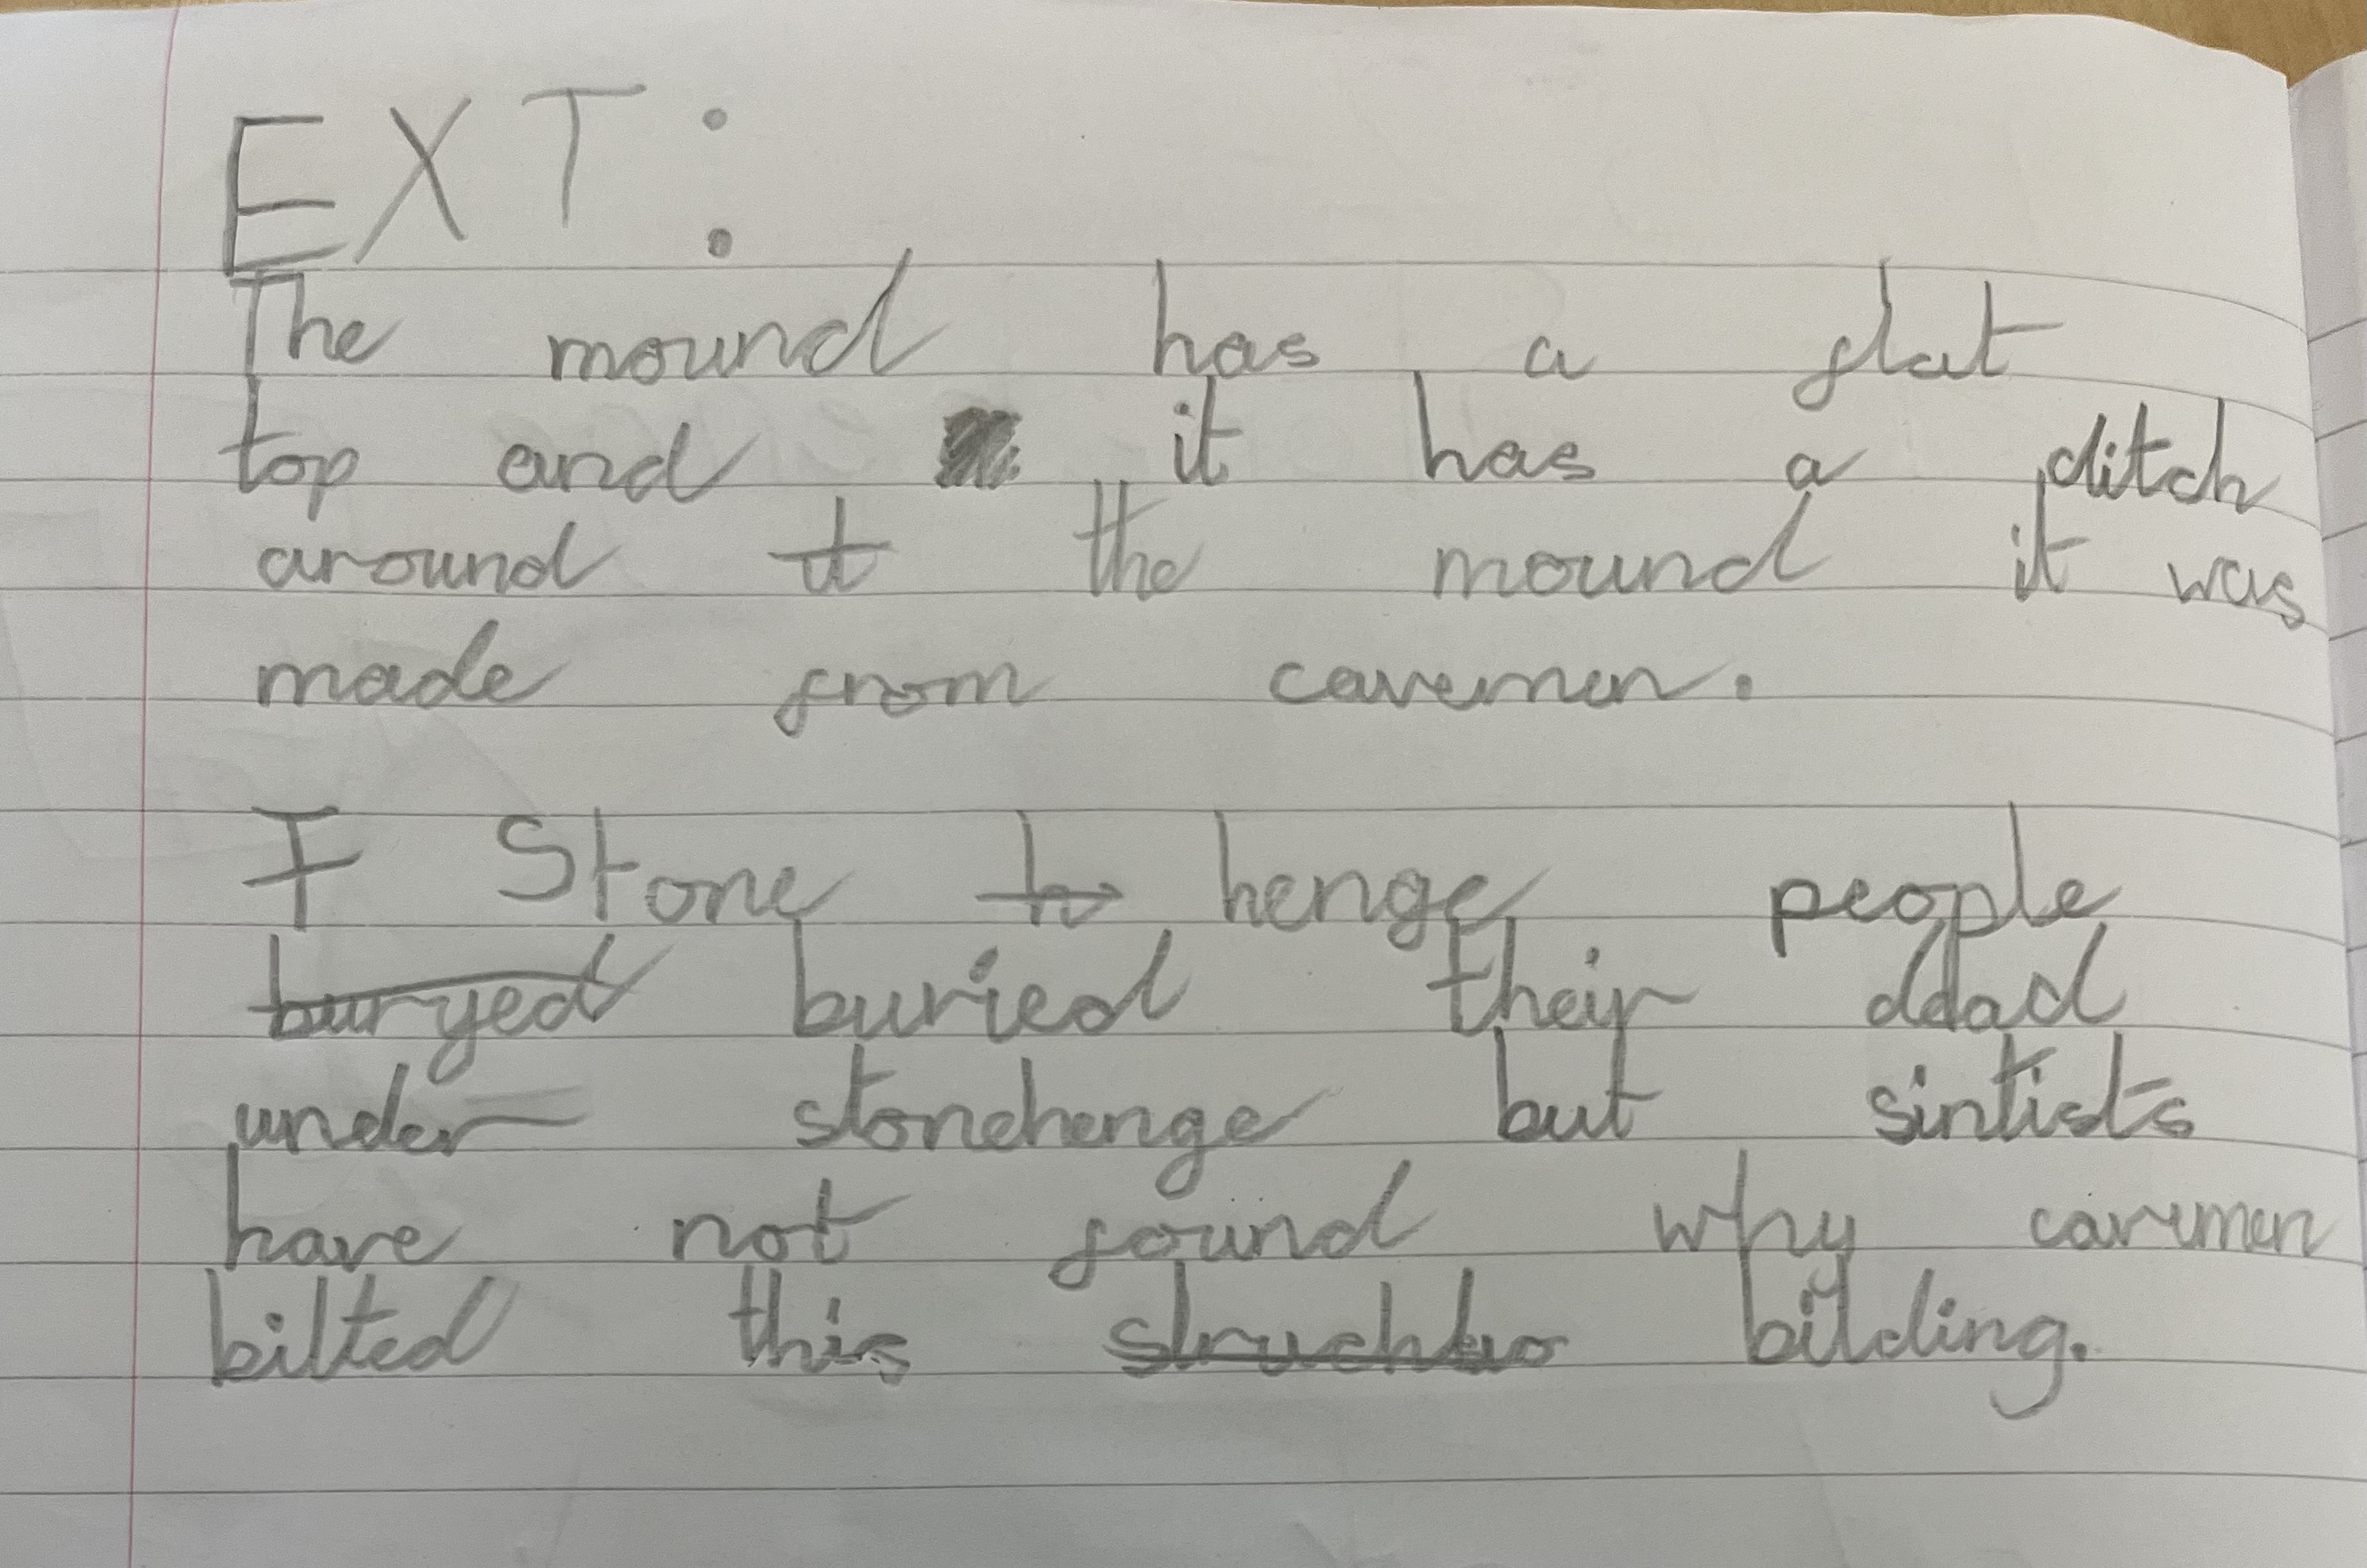 EXT:
The mound has a flat
top and it has a ditch
around t the mound it was
made from cavemen.
T Stone h henge people
buryed buried their ddad
under stonehenge but sintists
have not found why cavemen
bilted this struchtur bilding.